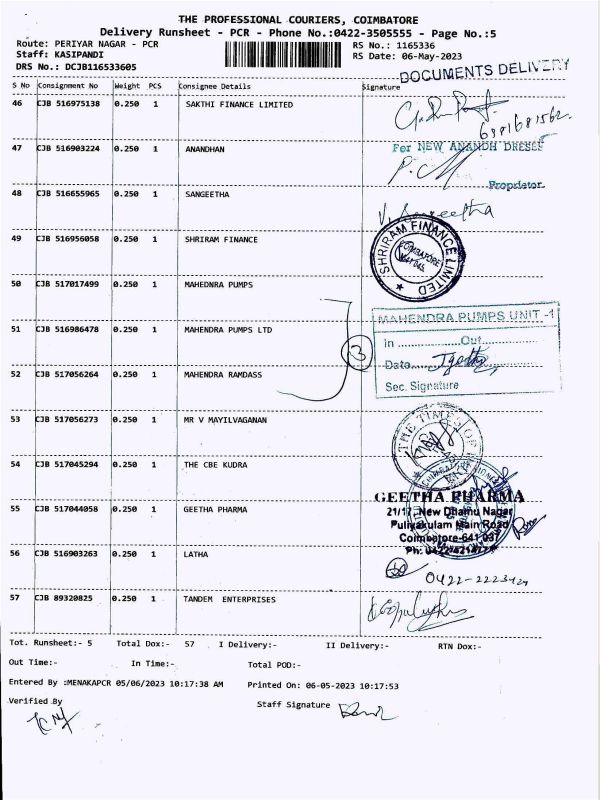 THE PROFESSIONAL COURIERS, COIMBATORE
Delivery Runsheet - PCR - Phone No.:0422-3505555 - Page No.:5
Route: PERIYAR NAGAR - PCR
RS No.: 1165336
Staff: KASIPANDI
RS Date: 06-May-2023
DRS No.: DCJB116533605
DOCUMENTS DELIVERY
S No Consignment No Weight PCS Consignee Details Signature
46 CJB 516975138 0.250 1 SAKTHI FINANCE LIMITED
6381681562.
47 CJB 516903224 0.250 1 ANANDHAN
For NEW ANANDH DRESES
Proprietor
48 CJB 516655965 0.250 1 SANGEETHA
V. Sangeetha
49 CJB 516956058 0.250 1 SHRIRAM FINANCE
SHRIRAM FINANCE LIMITED
COIMBATORE
50 CJB 517017499 0.250 1 MAHEDNRA PUMPS
51 CJB 516986478 0.250 1 MAHENDRA PUMPS LTD
3
MAHENDRA PUMPS UNIT -1
In ....................Out....................
Date....
Sec. Signature
52 CJB 517056264 0.250 1 MAHENDRA RAMDASS
53 CJB 517056273 0.250 1 MR V MAYILVAGANAN
THE TIMES OF
54 CJB 517045294 0.250 1 THE CBE KUDRA
55 CJB 517044058 0.250 1 GEETHA PHARMA
GEETHA PHARMA
21/17, New Dhamu Nagar
Puliyakulam Main Road
Coimbatore-641 037
56 CJB 516903263 0.250 1 LATHA
57 CJB 89320825 0.250 1 TANDEM ENTERPRISES
Tot. Runsheet:- 5 Total Dox:- 57 I Delivery:- II Delivery:- RTN Dox:-
Out Time:- In Time:- Total POD:-
Entered By :MENAKAPCR 05/06/2023 10:17:38 AM Printed On: 06-05-2023 10:17:53
Verified By
Staff Signature